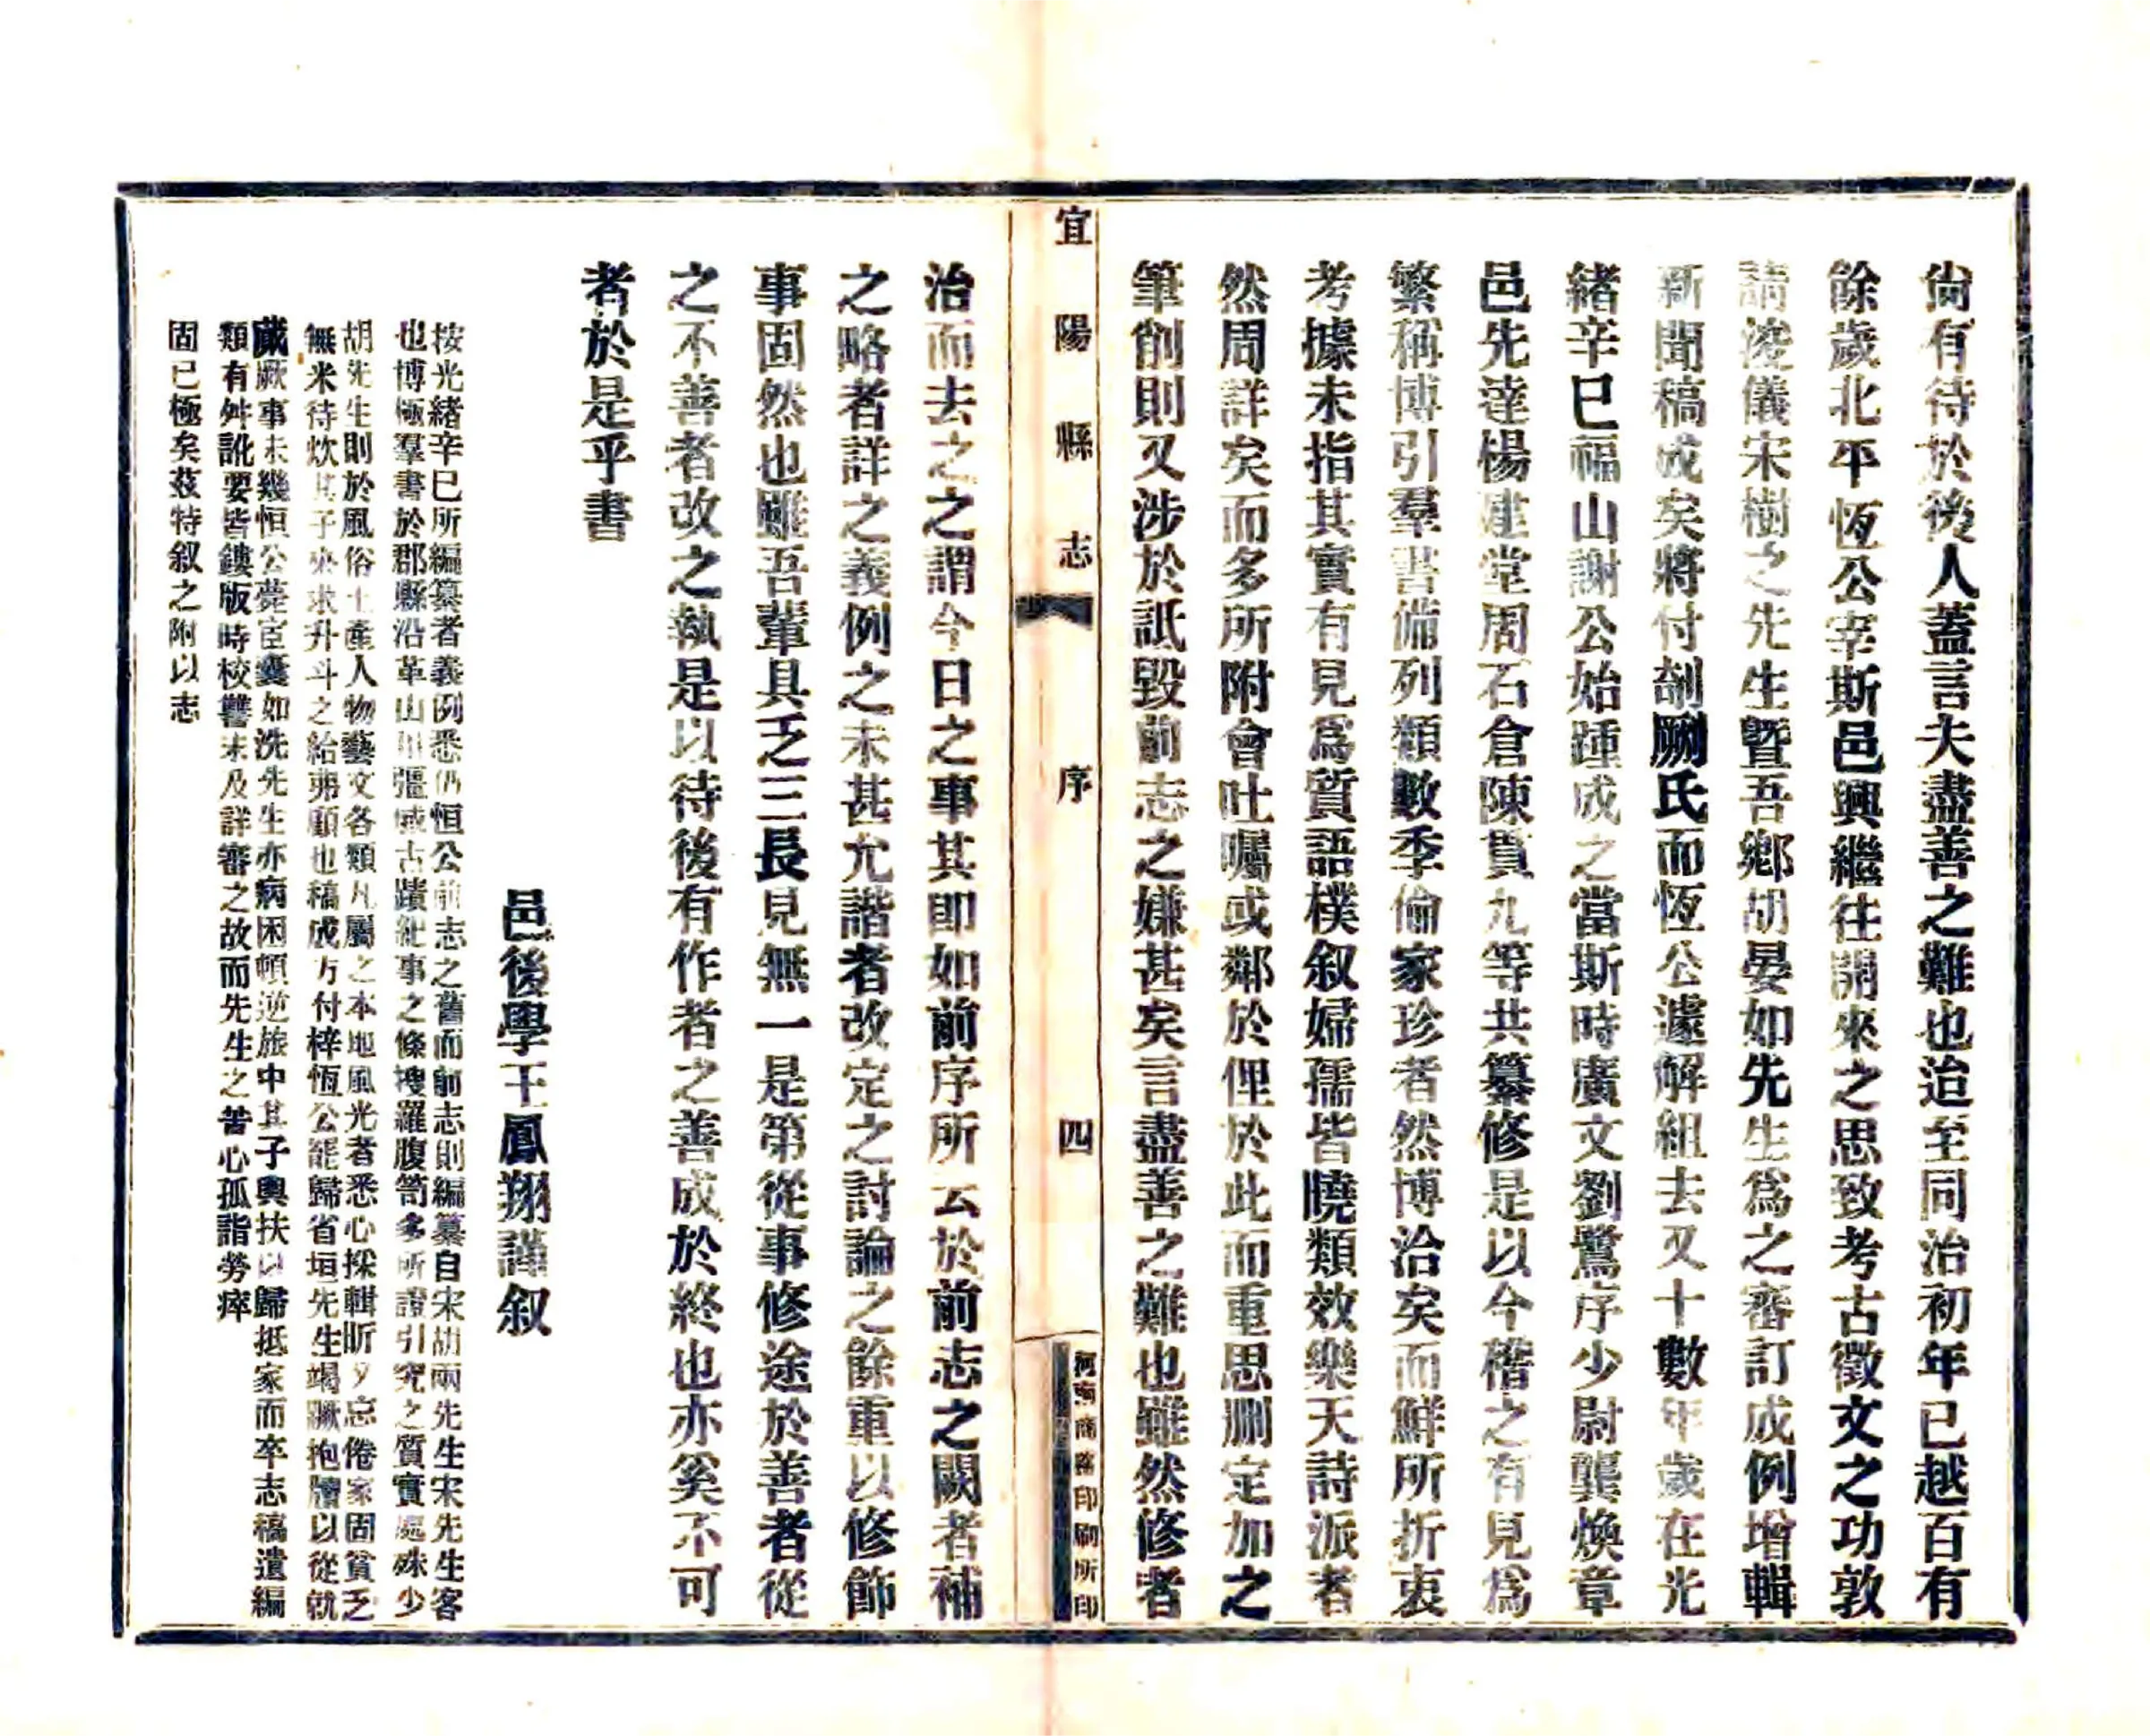 尙有待於後人蓋言夫盡善之難也迨至同治初年已越百有
餘歲北平恆公宰斯邑興繼往開來之思致考古徵文之功敦
請浚儀宋樹之先生曁吾鄉胡晏如先生爲之審訂成例增輯
新聞稿成矣將付剞劂氏而恆公遽解組去又十數年歲在光
緒辛巳福山謝公始踵成之當斯時廣文劉鷺序少尉龔煥章
邑先達楊建堂周石倉陳貫九等共纂修是以今稽之有見爲
繁稱博引羣書備列類數季倫家珍者然博洽矣而鮮所折衷
考據未指其實有見爲質語樸叙婦孺皆曉類效樂天詩派者
然周詳矣而多所附會吐囑或鄰於俚於此而重思刪定加之
筆削則又涉於詆毀前志之嫌甚矣言盡善之難也雖然修者
宜陽縣志 序 四 河南商務印刷所印
治而去之之謂今日之事其卽如前序所云於前志之闕者補
之略者詳之義例之未甚允諧者改定之討論之餘重以修飾
事固然也雖吾輩具乏三長見無一是第從事修途於善者從
之不善者改之執是以待後有作者之善成於終也亦奚不可
者於是乎書
邑後學王鳳翔謹叙
按光緒辛巳所編纂者義例悉仍恒公前志之舊而前志則編纂自宋胡兩先生宋先生客
也博極羣書於郡縣沿革山川疆域古蹟紀事之條搜羅腹笥多所證引究之質實處殊少
胡先生則於風俗土產人物藝文各類凡屬之本地風光者悉心採輯昕夕忘倦家固貧乏
無米待炊其子來求升斗之給弗顧也稿成方付梓恆公罷歸省垣先生竭蹶抱牘以從就
蕆厥事未幾恒公薨宦囊如洗先生亦病困頓逆旅中其子輿扶以歸抵家而卒志稿遺編
類有舛訛要皆鏤版時校讐未及詳審之故而先生之苦心孤詣勞瘁
固已極矣茲特叙之附以志